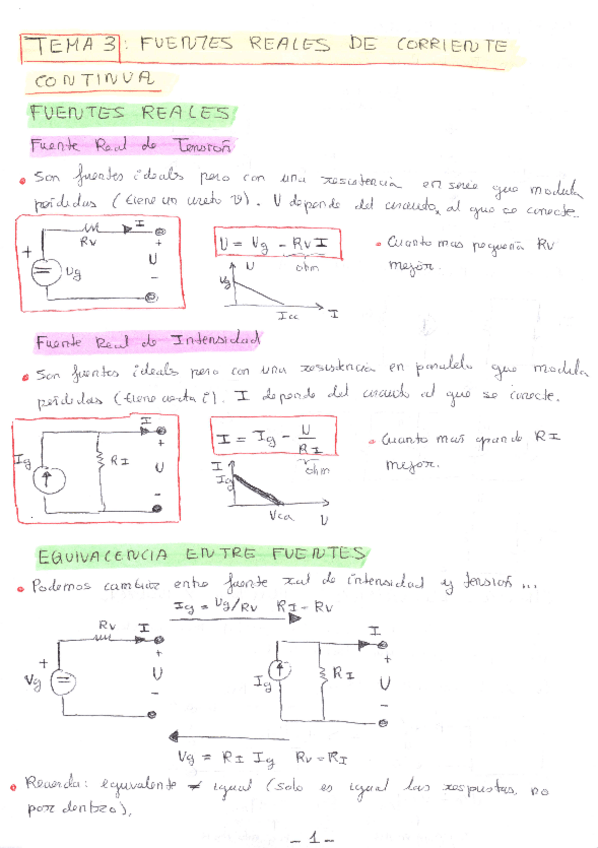 TEMA 3: FUENTES REALES DE CORRIENTE
CONTINUA
FUENTES REALES
Fuente Real de Tensión
• Son fuentes ideales pero con una resistencia en serie que modula
pérdidas (tiene un cierto v). U depende del circuito al que se conecte.
+ Rv I + U - Ug
U = Vg - Rv I
ohm
• Cuanto mas pequeña Rv
mejor.
U Vg Icc I
Fuente Real de Intensidad
• Son fuentes ideales pero con una resistencia en paralelo que modula
pérdidas (tiene cierta i). I depende del circuito al que se conecte.
Ig RI I + U -
I = Ig - U/RI
ohm
• Cuanto mas grande RI
mejor.
I Ig Vca U
EQUIVALENCIA ENTRE FUENTES
• Podemos cambiar entre fuente real de intensidad y tensión ...
Ig = Vg/Rv RI = Rv
+ Vg Rv I + U -
Ig RI I + U -
Vg = RI Ig Rv = RI
• Recuerda: equivalente ≠ igual (solo es igual las respustas, no
por dentro),
- 1 -